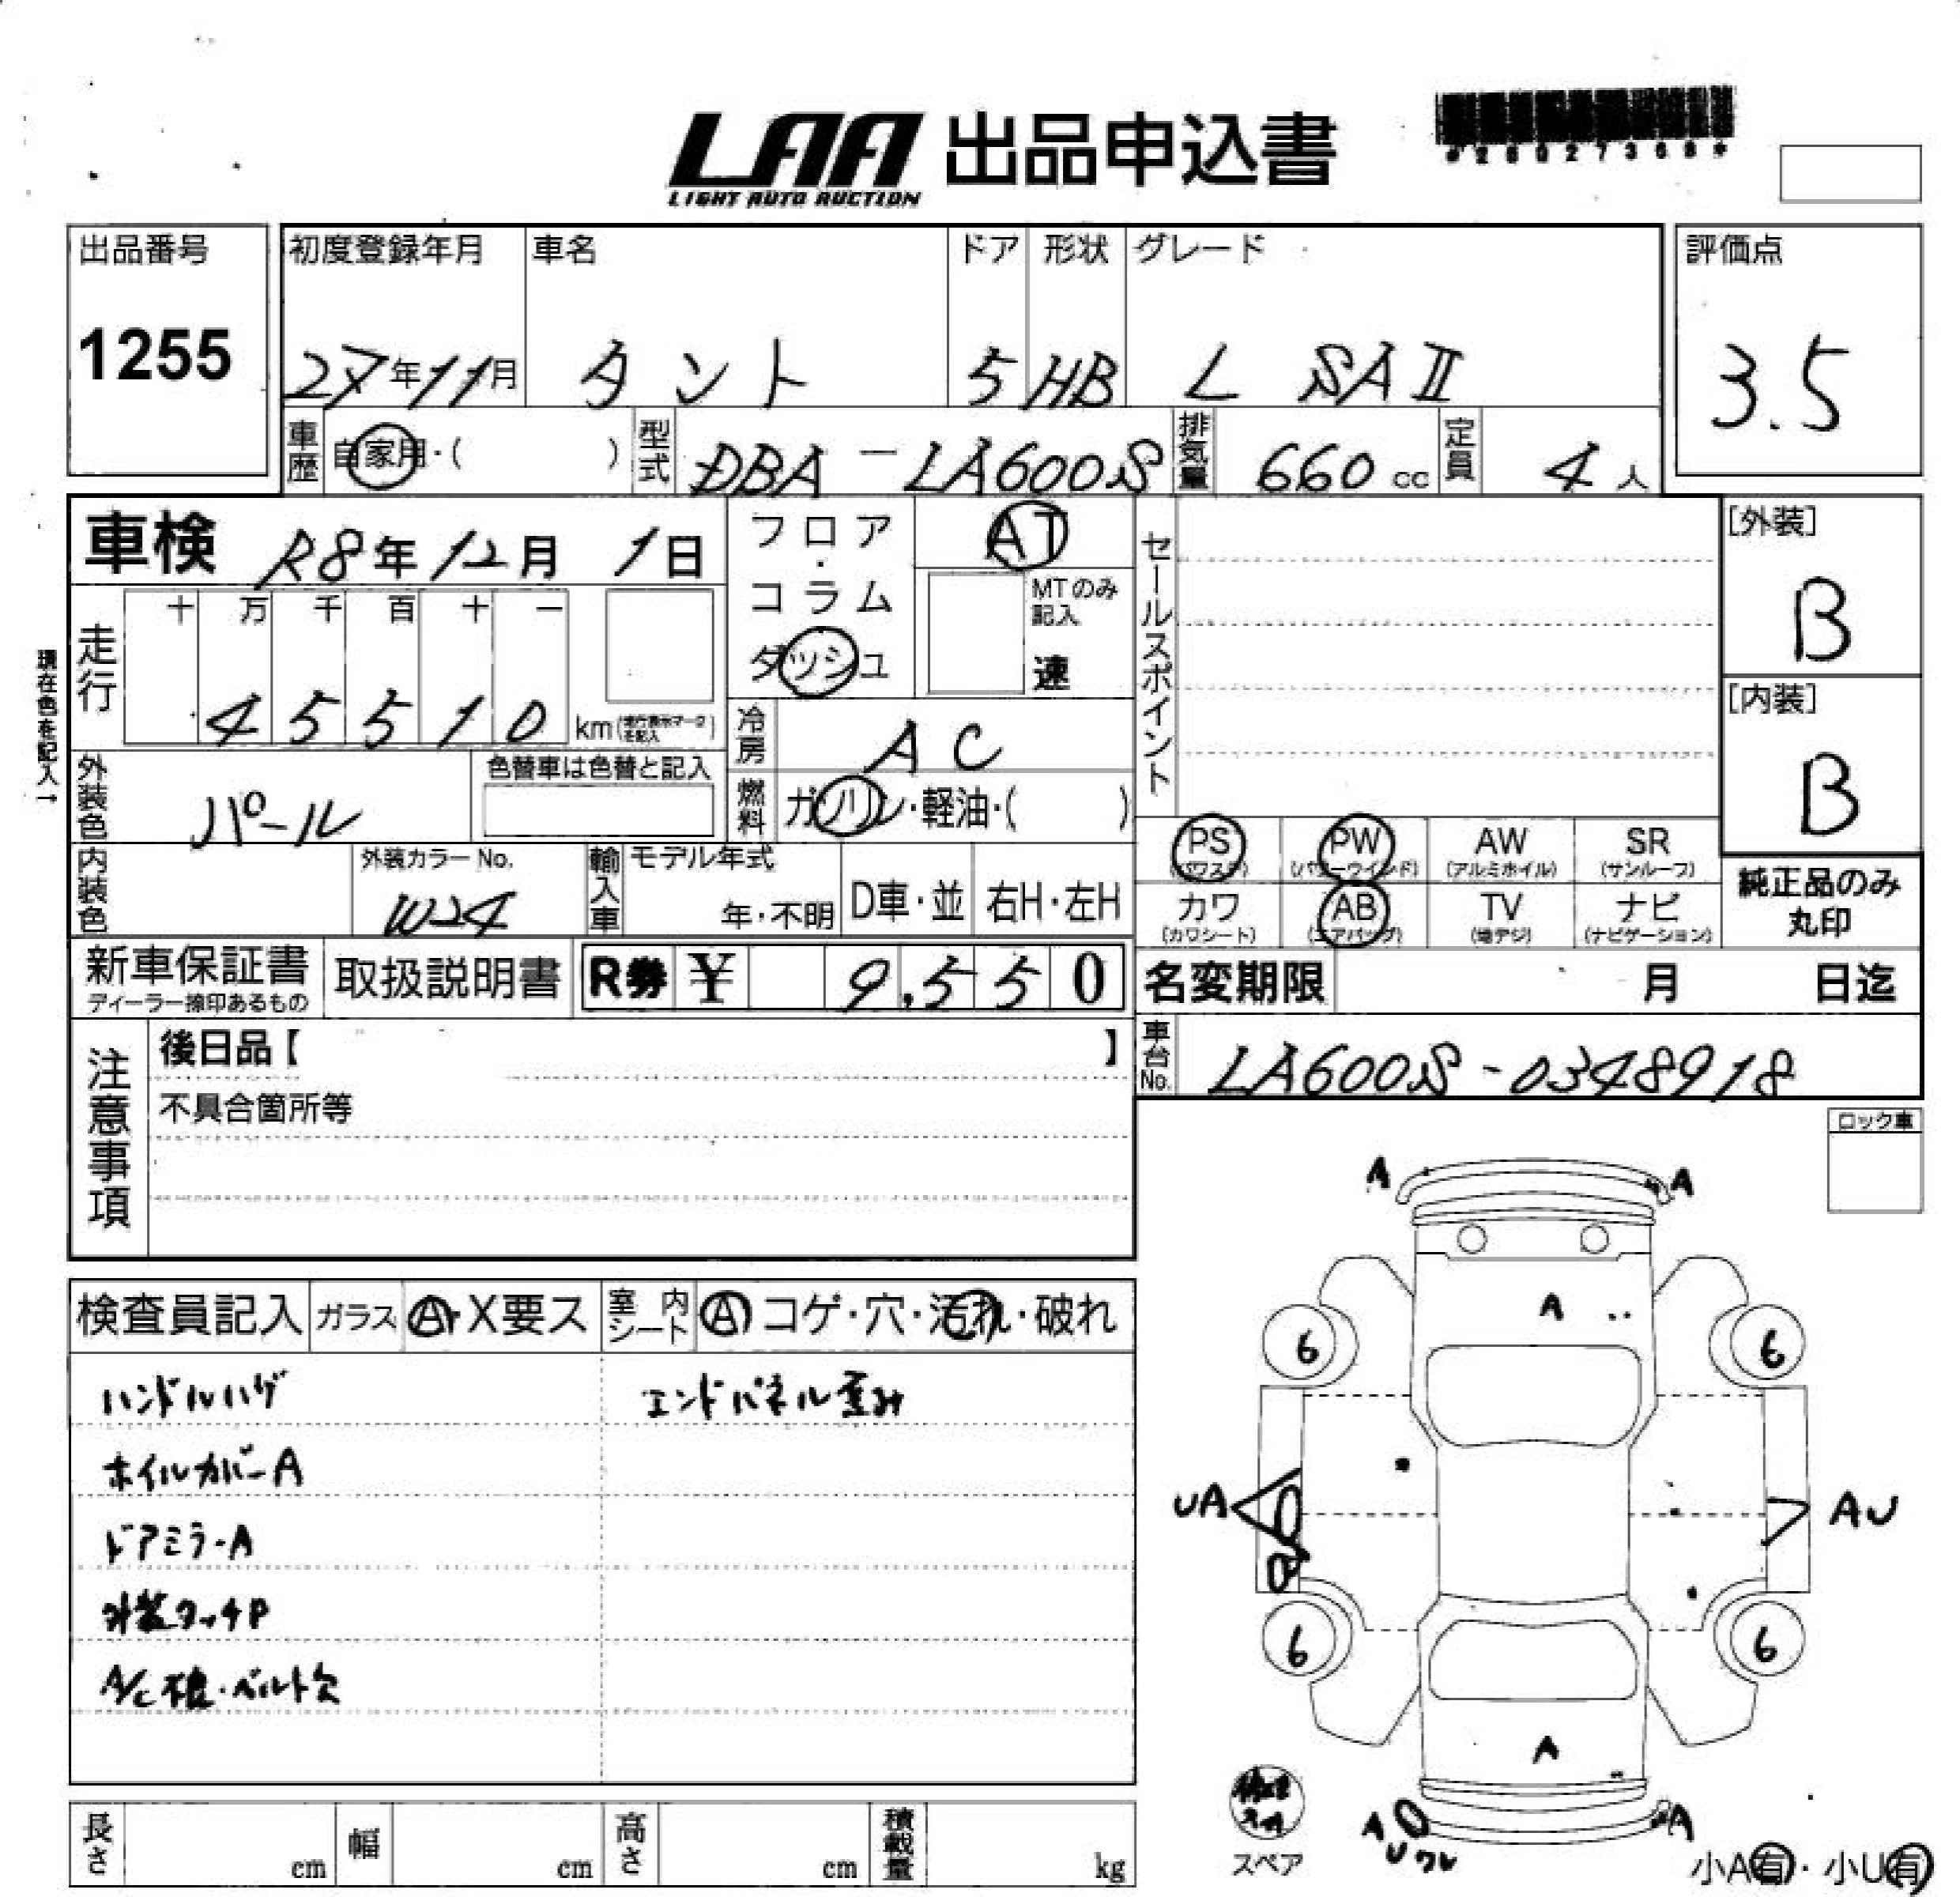 LAA 出品申込書
LIGHT AUTO AUCTION
出品番号 初度登録年月 車名 ドア 形状 グレード 評価点
1255 27年11月 タント 5 HB L SAⅡ 3.5
車歴 自家用・( ) 型式 DBA-LA600S 排気量 660cc 定員 4人
車検 R8年12月1日
フロア・コラム ダッシュ
AT
MTのみ記入
速
セールスポイント
[外装]
B
[内装]
B
現在色を記入→
走行 十 万 千 百 十 一
45510 km
冷房 AC
外装色 パール 色替車は色替と記入
燃料 ガソリン・軽油・( )
内装色 外装カラーNo. W24 輸入車 モデル年式 年・不明 D車・並 右H・左H
PS (パワステ) PW (パワーウインド) AW (アルミホイル) SR (サンルーフ)
カワ (カワシート) AB (エアバッグ) TV (地デジ) ナビ (ナビゲーション)
純正品のみ丸印
新車保証書 取扱説明書 R券 ¥ 9,550
ディーラー捺印あるもの
名変期限 月 日迄
注意事項
後日品【 】
不具合箇所等
車台No. LA600S-0348918
ロック車
検査員記入 ガラス A・X要ス 室内シート A コゲ・穴・汚れ・破れ
ハンドルハゲ エンドパネル歪み
ホイルカバーA
ドアミラーA
外装タッチP
ベルト欠
A A
A
6 6
UA AU
6 6
A
A U ワレ A
修理キット
スペア
小A有・小U有
長さ cm 幅 cm 高さ cm 積載量 kg